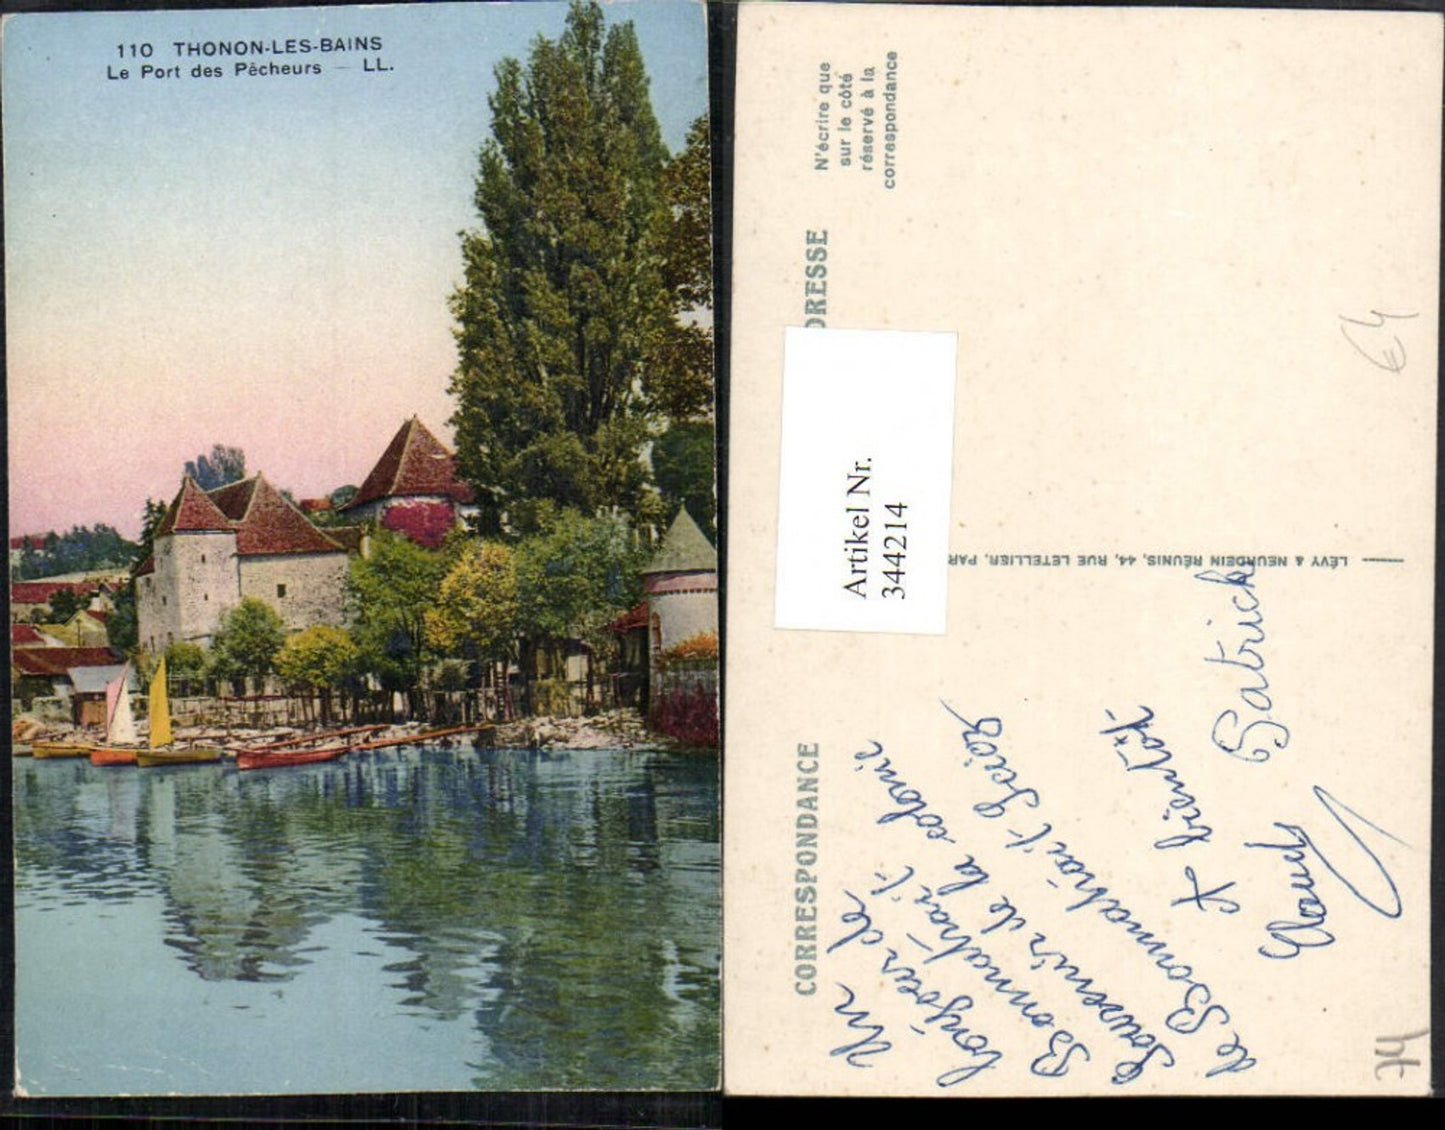 110 THONON-LES-BAINS
Le Port des Pêcheurs — LL.
N'écrire que
sur le côté
réservé à la
correspondance
DRESSE
Artikel Nr.
344214
LÉVY & NEURDEIN RÉUNIS, 44, RUE LETELLIER, PAR
64
CORRESPONDANCE
Un
de
Souvenir de la colonie
de
A bientôt
Patrick
74